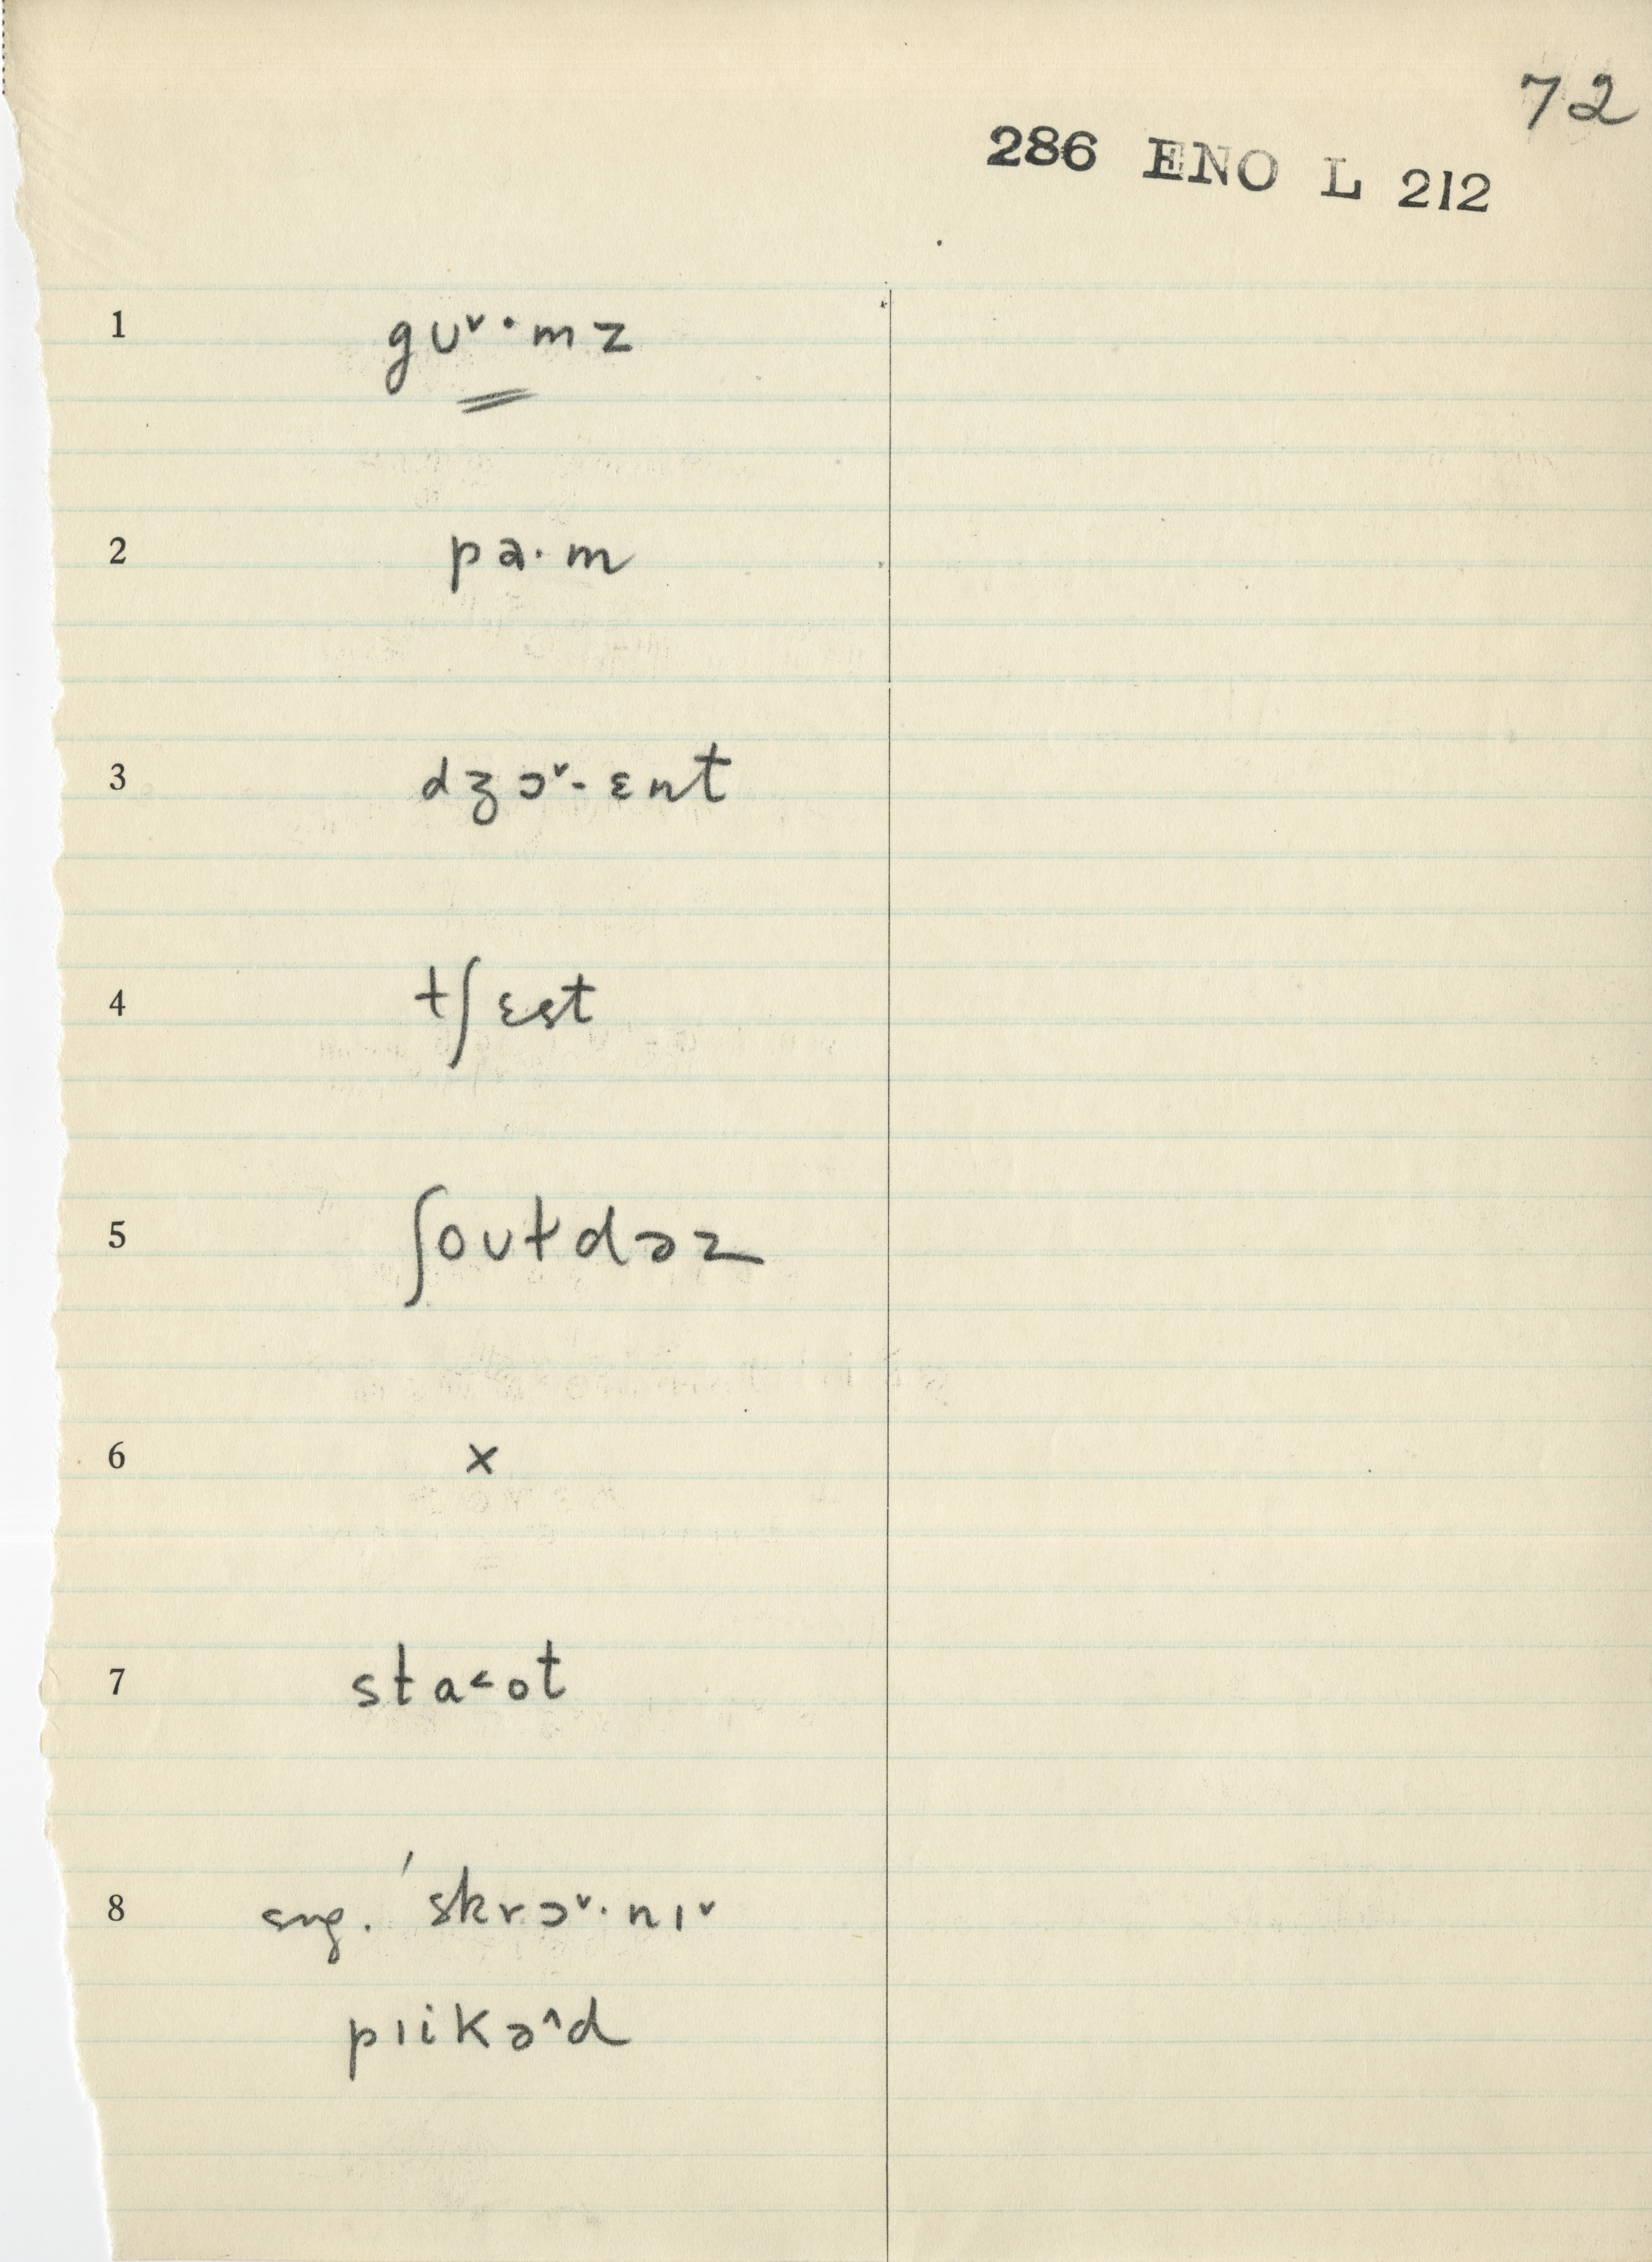 72
286 ENO L 212
1 gʊ˅·mz
2 pa·m
3 dʒɔ˅·ɛnt
4 tʃɛst
5 ʃoʊɫdəz
6 x
7 sta˂ot
8 sng. ˈskrɔ˅·nɪ˅
pɪikə˄d